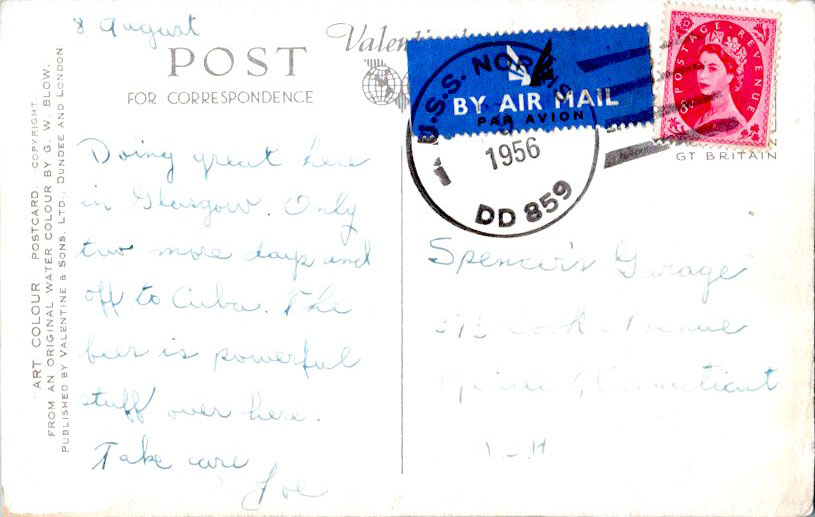 8 August
POST
FOR CORRESPONDENCE
"ART COLOUR" POSTCARD. COPYRIGHT
FROM AN ORIGINAL WATER COLOUR BY G. W. BLOW.
PUBLISHED BY VALENTINE & SONS, LTD., DUNDEE AND LONDON.
Doing great here
in Glasgow. Only
two more days and
off to Cuba. The
beer is powerful
stuff over here.
Take care
Joe
BY AIR MAIL
PAR AVION
U.S.S. NORRIS
1956
DD 859
POSTAGE REVENUE
8D
GT BRITAIN
Spencer's Garage
Avenue
Connecticut